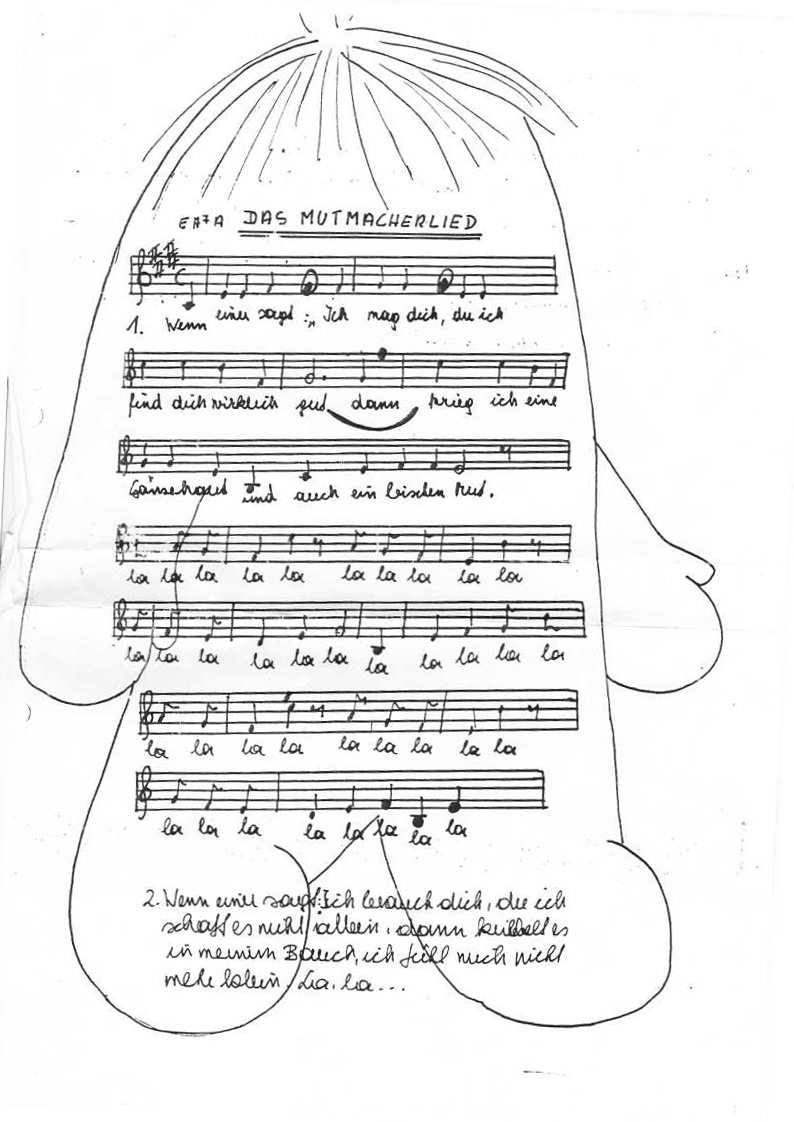 EA7A DAS MUTMACHERLIED
1. Wenn einer sagt: „Ich mag dich, du ich
find dich wirklich gut dann krieg ich eine
Gänsehaut und auch ein bischen Mut.
la la la la la la la la la la
la la la la la la la la la la la
la la la la la la la la la
la la la la la la la la
2. Wenn einer sagt: Ich brauch dich, du ich
schaff es nicht allein, dann kribbelt es
in meinem Bauch, ich fühl mich nicht
mehr so klein. La. la...